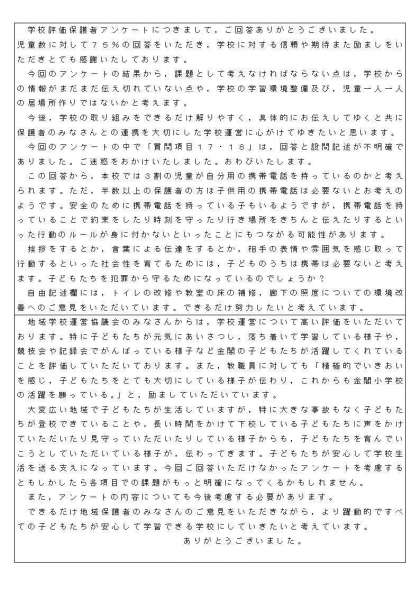 学校評価保護者アンケートにつきまして、ご回答ありがとうございました。
児童数に対して７５％の回答をいただき、学校に対する信頼や期待また励ましをい
ただきとても感謝いたしております。
今回のアンケートの結果から、課題として考えなければならない点は、学校から
の情報がまだまだ伝え切れていない点や、学校の学習環境整備及び、児童一人一人
の居場所作りではないかと考えます。
今後、学校の取り組みをできるだけ解りやすく、具体的にお伝えしてゆくと共に
保護者のみなさんとの連携を大切にした学校運営に心がけてゆきたいと思います。
今回のアンケートの中で「質問項目１７・１８」は、回答と設問記述が不明確で
ありました。ご迷惑をおかけいたしました。おわびいたします。
この回答から、本校では３割の児童が自分用の携帯電話を持っているのかと考え
られます。ただ、半数以上の保護者の方は子供用の携帯電話は必要ないとお考えの
ようです。安全のために携帯電話を持っている子もいるようですが、携帯電話を持
っていることで約束をしたり時刻を守ったり行き場所をきちんと伝えたりするとい
った行動のルールが身に付かないといったことにもつながる可能性があります。
挨拶をするとか、言葉による伝達をするとか、相手の表情や雰囲気を感じ取って
行動するといった社会性を育てるためには、子どものうちは携帯は必要ないと考え
ます。子どもたちを犯罪から守るためになっているのでしょうか？
自由記述欄には、トイレの改修や教室の床の補修、廊下の照度についての環境改
善へのご意見をいただいています。できるだけ努力したいと考えています。
地域学校運営協議会のみなさんからは、学校運営について高い評価をいただいて
おります。特に子どもたちが元気にあいさつし、落ち着いて学習している様子や、
競技会や記録会でがんばっている様子など金閣の子どもたちが活躍してくれている
ことを評価していただいております。また、教職員に対しても「積極的でいきおい
を感じ、子どもたちをとても大切にしている様子が伝わり、これからも金閣小学校
の活躍を願っている。」と、励ましていただいています。
大変広い地域で子どもたちが生活していますが、特に大きな事故もなく子どもた
ちが登校できていることや、長い時間をかけて下校している子どもたちに声をかけ
ていただいたり見守っていただいたりしている様子からも、子どもたちを育んでい
こうとしていただいている様子が、伝わってきます。子どもたちが安心して学校生
活を送る支えになっています。今回ご回答いただけなかったアンケートを考慮する
ともしかしたら各項目での課題がもっと明確になってくるかもしれません。
また、アンケートの内容についても今後考慮する必要があります。
できるだけ地域保護者のみなさんのご意見をいただきながら、より躍動的ですべ
ての子どもたちが安心して学習できる学校にしていきたいと考えています。
ありがとうございました。